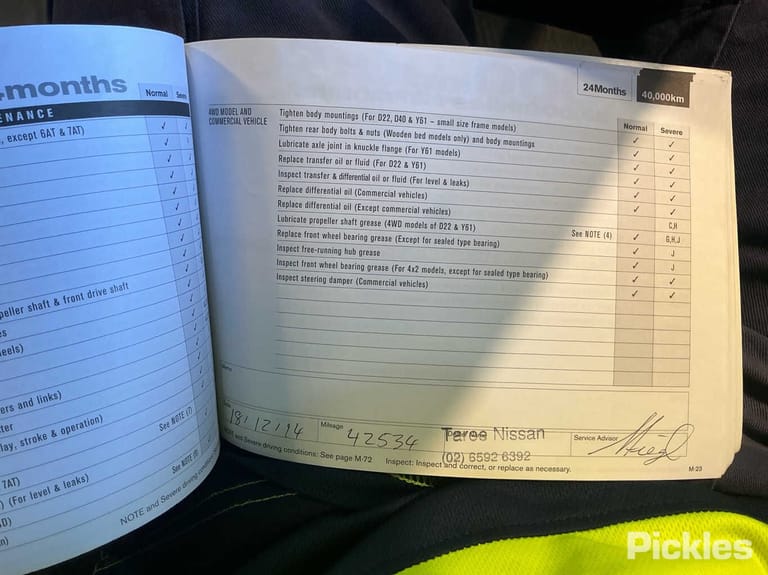 months
Normal
ENANCE
, except 6AT & 7AT)
peller shaft & front drive shaft
es
eels)
ers and links)
tter
lay, stroke & operation)
See NOTE (7)
7AT)
) (For level & leaks)
See NOTE (8)
D)
n)
NOTE and Severe driving
24Months
40,000km
4WD MODEL AND
COMMERCIAL VEHICLE
Normal Severe
Tighten body mountings (For D22, D40 & Y61 – small size frame models) ✓ ✓
Tighten rear body bolts & nuts (Wooden bed models only) and body mountings ✓ ✓
Lubricate axle joint in knuckle flange (For Y61 models) ✓ ✓
Replace transfer oil or fluid (For D22 & Y61) ✓ ✓
Inspect transfer & differential oil or fluid (For level & leaks) ✓ ✓
Replace differential oil (Commercial vehicles) ✓ ✓
Replace differential oil (Except commercial vehicles) C,H
Lubricate propeller shaft grease (4WD models of D22 & Y61) See NOTE (4) ✓ G,H,J
Replace front wheel bearing grease (Except for sealed type bearing) ✓ J
Inspect free-running hub grease ✓ J
Inspect front wheel bearing grease (For 4x2 models, except for sealed type bearing) ✓ ✓
Inspect steering damper (Commercial vehicles) ✓ ✓
Memo
Date 18/12/14 Mileage 42534 Taree Nissan Service Advisor
(02) 6592 6392
NOTE and Severe driving conditions: See page M-72 Inspect: Inspect and correct, or replace as necessary. M-23
Pickles